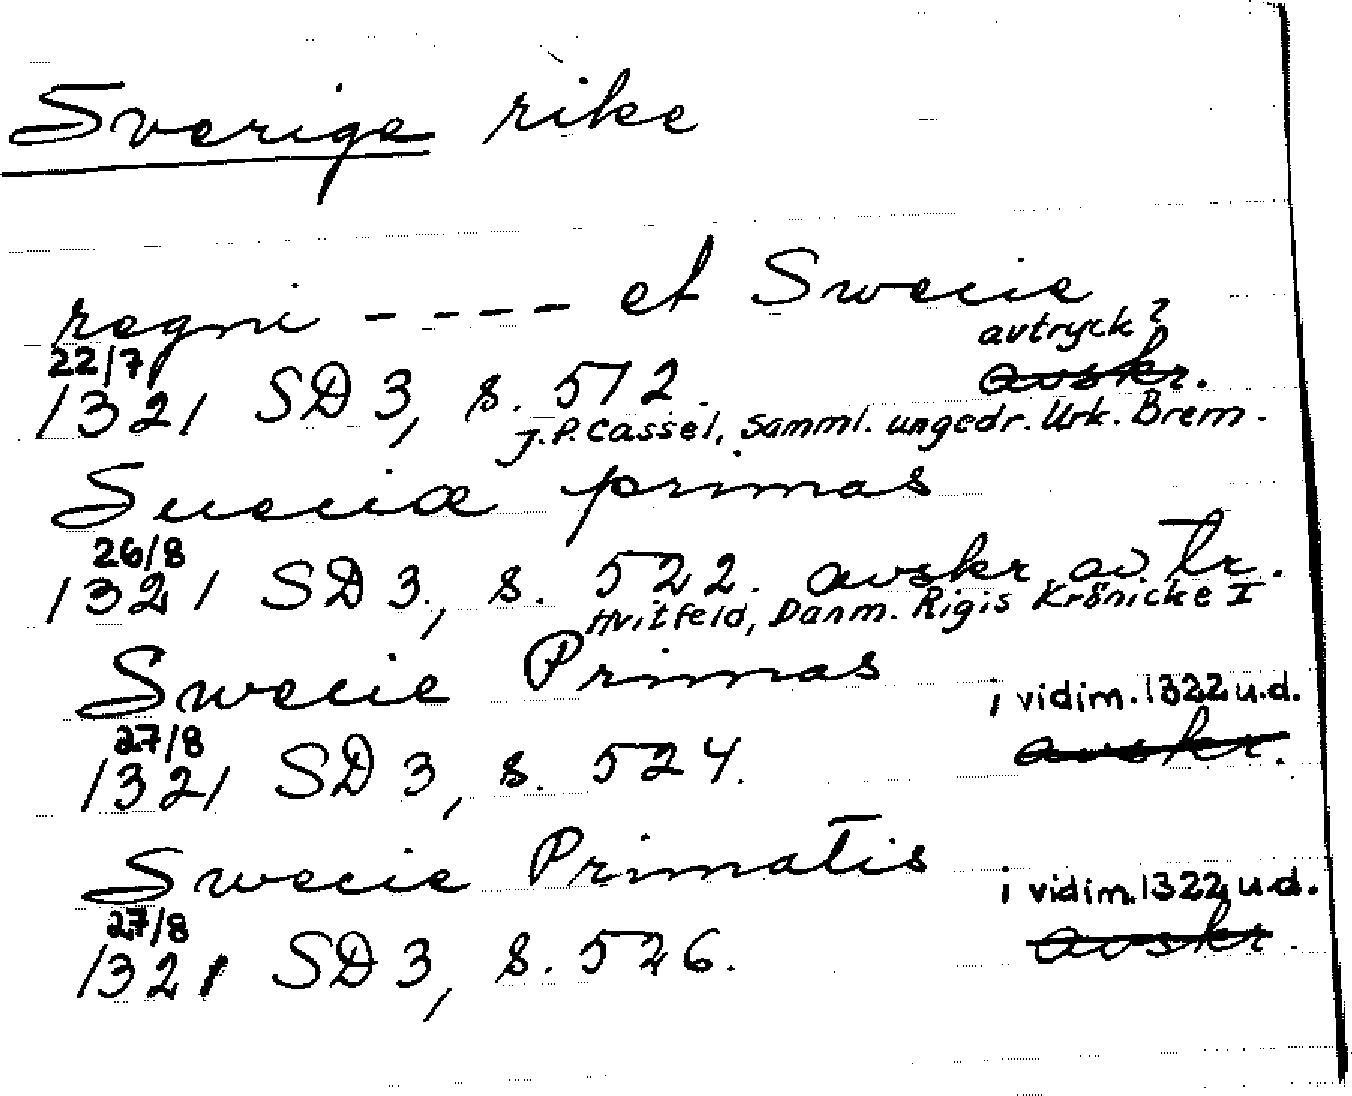 Sverige rike
regni - - - - et Swecie
avtryck?
22/7
1321 SD 3, s. 512. avskr.
J.P. Cassel, Samml. ungedr. Urk. Brem.
Sueciæ primas
26/8
1321 SD 3, s. 522. avskr av tr.
Hvitfeld, Danm. Rigis Krönicke I
Swecie Primas
i vidim. 1322 u.d.
27/8
1321 SD 3, s. 524. avskr.
Swecie Primatis
i vidim. 1322 u.d.
27/8
1321 SD 3, s. 526. avskr.